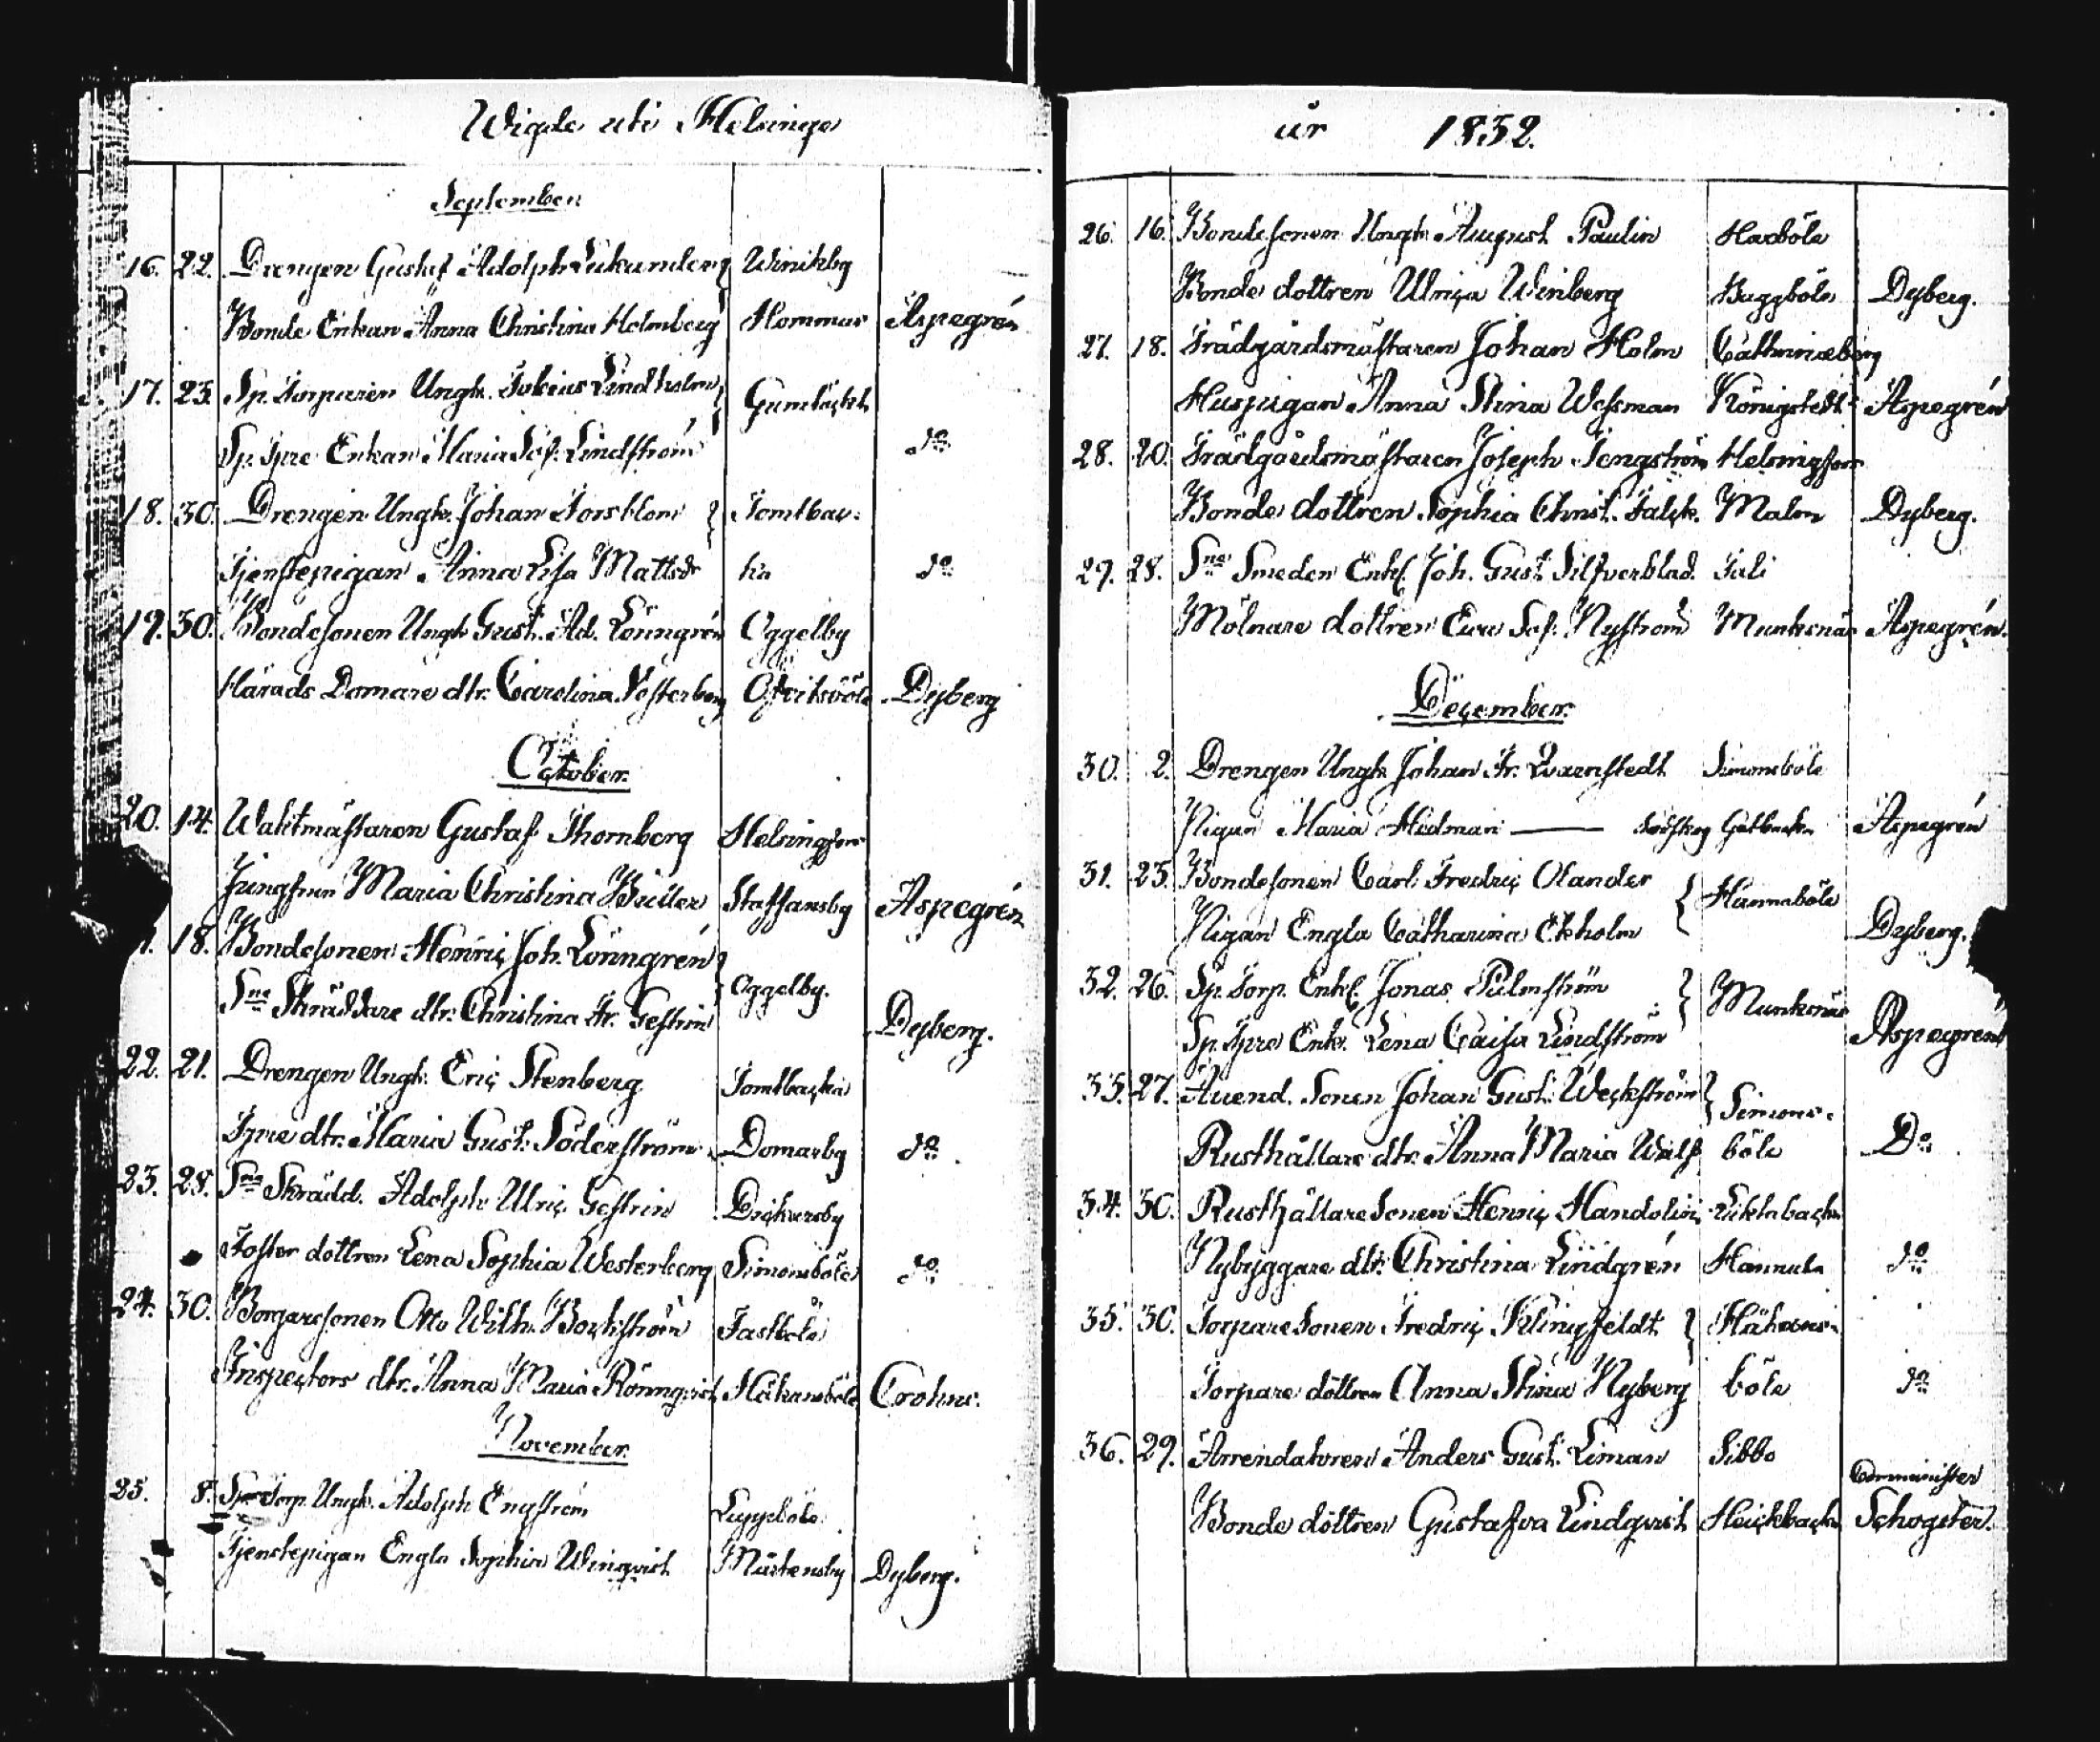 Wigde uti Helsinge
September
16. 22. Drengen Gustaf Adolph Winikby
Bonde Enkan Anna Christina Holmberg Hommas Aspegrén
17. 23. Sp. Torparen Ungk. Lindholm Gumtäckt
Sp. Tpre Enkan Maria Sof. Lindström do
18. 30. Drengen Ungk. Johan Forsblom Tomtbac-
Tjenstepigan Anna Lisa Mattsdr ka do
19. 30. Bondesonen Ungk Gust. Ad. Lönngrén Oggelby
Härads Domare dtr. Carolina Österberg Dyberg
October.
20. 14. Waktmästaren Gustaf Thornberg Helsingfors
Jungfrun Maria Christina Staffansby Aspegrén
1. 18. Bondesonen Henric Joh. Lönngrén Oggelby.
Sne Skräddare dtr. Christina Fr. Gestrin Dyberg.
22. 21. Drengen Ungk. Eric Stenberg Tomtbacka
Tpre dtr. Maria Gust. Söderström Domarby do
23. 28. Sne Skrädd. Adolph Ulric Gestrin Dickursby
Foster dottren Lena Sophia Westerberg Simonsböle do
24. 30. Borgaresonen Otto Wilh. Bockström Fastböle
Inspectors dtr. Anna Maria Rönnqvist Håkansböle Crohns.
November.
25. 8. Sp. Torp. Ungk. Adolph Engström
Tjenstepigan Engla Sophia Winqvist Mårtensby Dyberg.
år 1832.
26. 16. Bondesonen Ungk. August Paulin Haxböle
Bonde dottren Ulrica Winberg Biggböle Dyberg.
27. 18. Trädgårdsmästaren Johan Holm Cathrinæberg
Huspigan Anna Stina Wessman Königstedt Aspegrén
28. 20. Trädgårdsmästaren Joseph Tengström Helsingfors
Bonde dottren Sophia Christ. Falck. Malm Dyberg.
29. 28. Sne Smeden Enkl. Joh. Gust. Silfverblad. Tali
Mölnare dottren Eva Sof. Nyström Munksnäs Aspegrén.
December.
30. 2. Drengen Ungk Johan Fr. Qvarnstedt Simonsböle
Pigan Maria Hedman — Aspegrén
31. 23. Bondesonen Carl Fredric Olander Hannaböle
Pigan Engla Catharina Ekholm Dyberg.
32. 26. Sp. Torp. Enkl. Jonas Palmström Munksnäs
Sp. Tpre Enk. Lena Caisa Lindström Aspegrén
33. 27. Auend. Sonen Johan Gust. Weckström Simons-
Rusthållare dtr. Anna Maria Walf böle Do
34. 30. Rusthållare Sonen Henric Mandolin
Nybyggare dtr. Christina Lindgrén Hannula do
35. 30. Torpare Sonen Fredric Klingfeldt Håkans-
Torpare döttren Anna Stina Nyberg böle do
36. 29. Arrendatoren Anders Gust. Liman Sibbo
Comminister
Bonde döttren Gustafva Lindqvist Heickbacka Schogster.